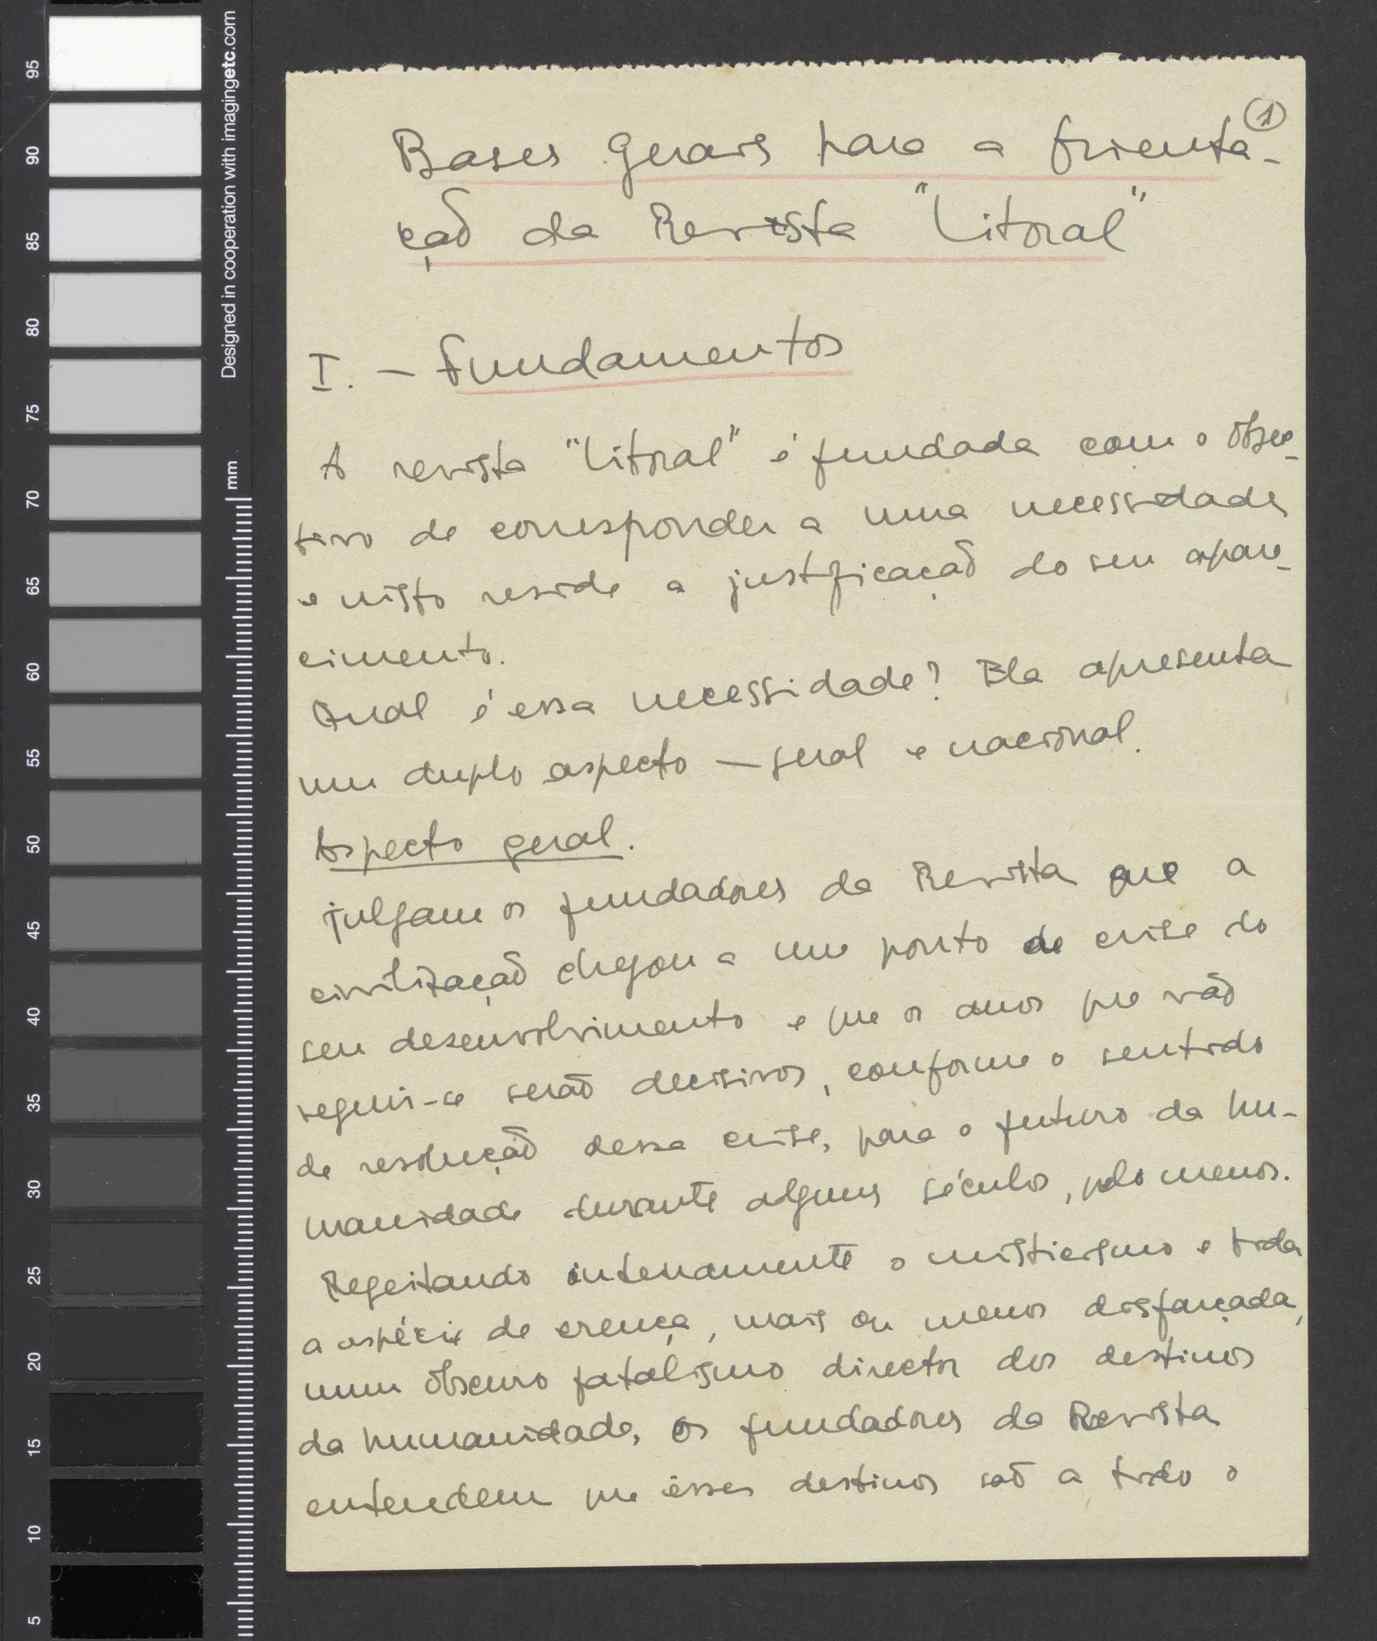 95
90
85
80
75
70
65
60
55
50
45
40
35
30
25
20
15
10
5
Designed in cooperation with imagingetc.com
mm
1
Bases gerais para a orienta-
ção da Revista "Litoral"
I. - Fundamentos
A revista "Litoral" é fundada com o objec-
tivo de corresponder a uma necessidade,
e nisto reside a justificação do seu apare-
cimento.
Qual é essa necessidade? Ela apresenta
um duplo aspecto — geral e nacional.
Aspecto geral.
Julgam os fundadores da Revista que a
civilização chegou a um ponto de crise do
seu desenvolvimento e que os anos que vão
seguir-se serão decisivos, conforme o sentido
de resolução dessa crise, para o futuro da hu-
manidade durante alguns séculos, pelo menos.
Regeitando inteiramente o misticismo e toda
a espécie de crença, mais ou menos disfarçada,
num obscuro fatalismo director dos destinos
da humanidade, os fundadores da Revista
entendem que êsses destinos são a todo o